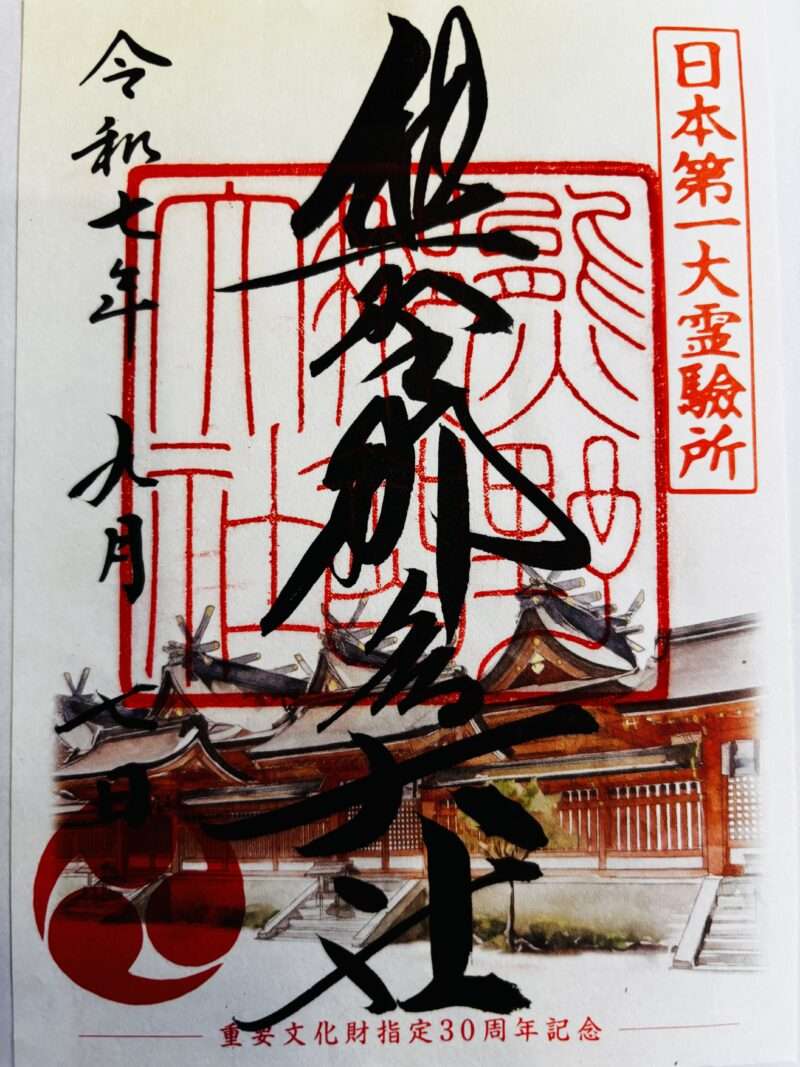 日本第一大霊驗所
熊野那智大社
令和七年 九月 七日
熊野
大社
重要文化財指定30周年記念